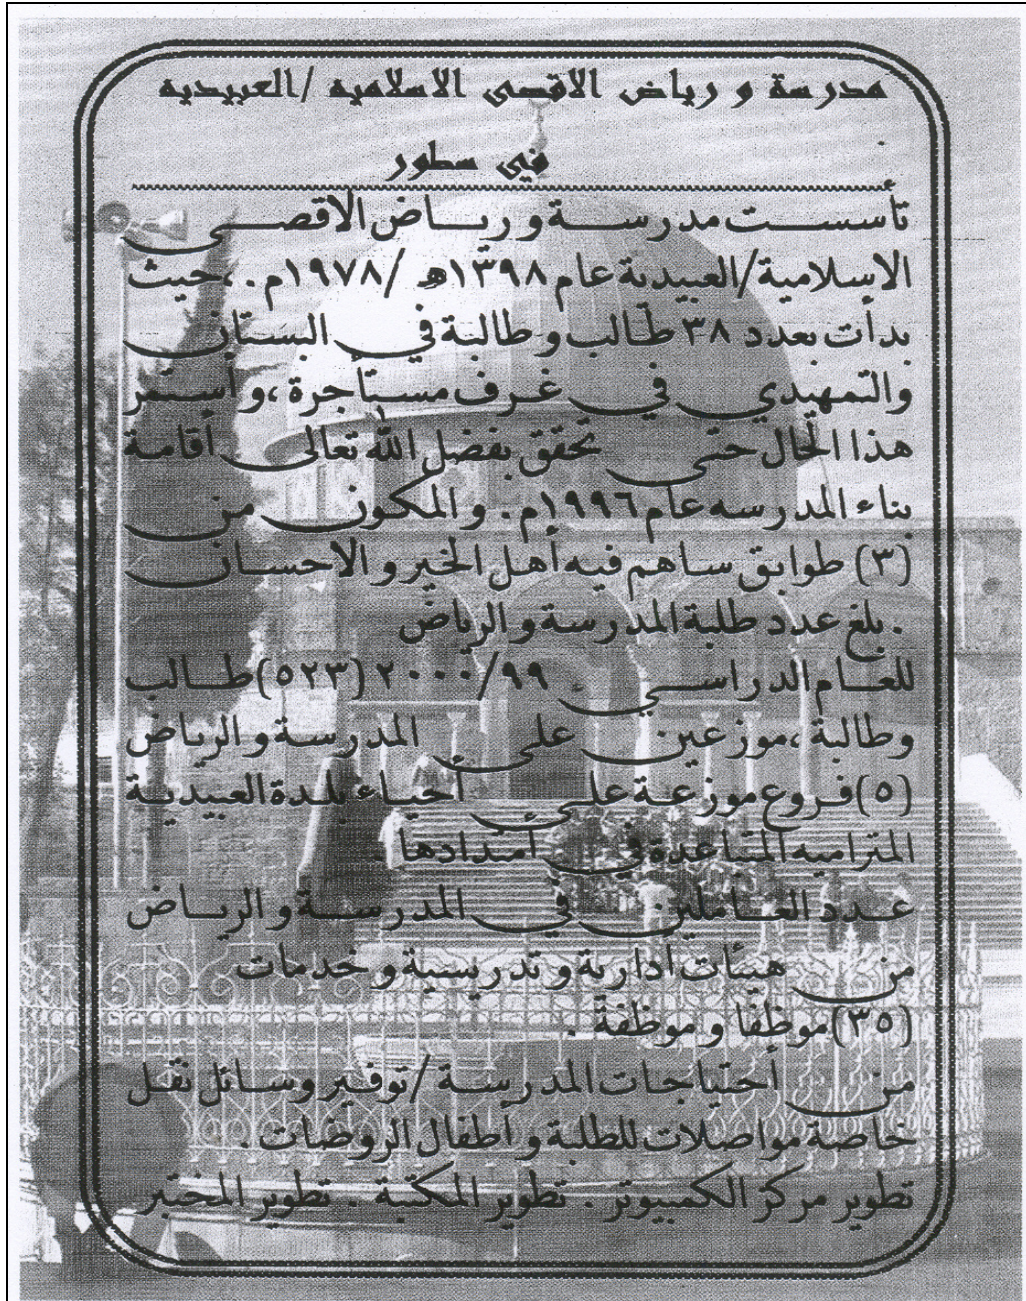 مدرسة و رياض الاقصى الاسلاميه /العبيديه
في سطور
تأسست مدرسة و رياض الاقصى
الاسلامية/العبيدية عام ١٣٩٨ه /١٩٧٨م . ،حيث
بدأت بعدد ٣٨ طالب و طالبة في البستان
والتمهيدي في غرف مستأجرة ،و أستمر
هذا الحال حتى تحقق بفضل الله تعالى أقامة
بناء المدرسه عام ١٩٩٦م . و المكون من
(٣) طوابق ساهم فيه أهل الخير و الاحسان
. بلغ عدد طلبة المدرسة و الرياض
للعام الدراسي ٢٠٠٠/٩٩ (٥٢٣)طالب
وطالبة ،موزعين على المدرسة و الرياض
(٥)فروع موزعة على أحياء بلدة العبيدية
المتراميه المتباعدة في أمتدادها .
عدد العاملين في المدرسة و الرياض
من هيئات أدارية و تدريسية و خدمات
(٣٥)موظفا و موظفة .
من أحتياجات المدرسة /توفير وسائل نقل
خاصة مواصلات للطلبة و أطفال الروضات .
تطوير مركز الكمبيوتر . تطوير المكتبة . تطوير المختبر